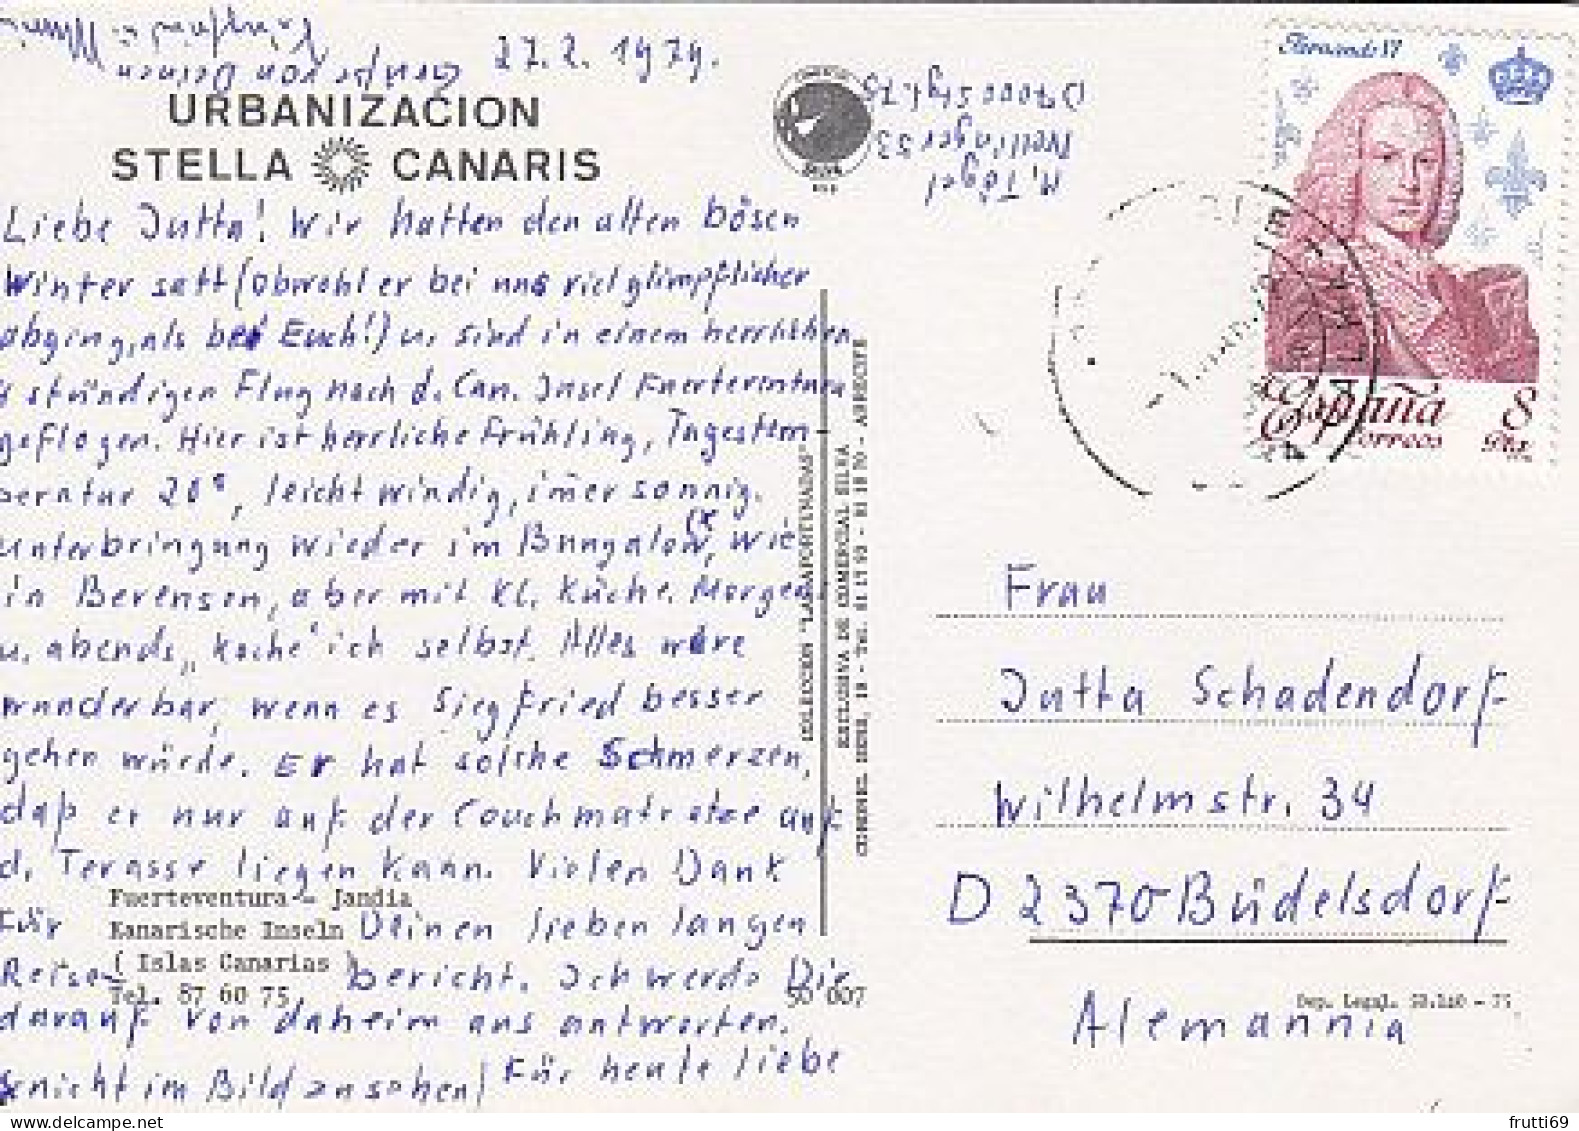 27.2.1979.
URBANIZACION
STELLA CANARIS
Liebe Jutta! Wir hatten den alten bösen
Winter satt (obwohl er bei uns viel glimpflicher
abging, als bei Euch!) u. sind in einem herrlichen
4 stündigen Flug nach d. Can. Insel Fuerteventura
geflogen. Hier ist herrliche Frühling, Tagestem
peratur 20°, leicht windig, immer sonnig.
Unterbringung wieder im Bungalow(x, wie
in Berensen, aber mit kl. Küche. Morgens
u. abends „koche" ich selbst. Alles wäre
wunderbar, wenn es Siegfried besser
gehen würde. Er hat solche Schmerzen,
daß er nur auf der Couchmatratze auf
d. Terasse liegen kann. Vielen Dank
für Deinen lieben langen
Reise bericht. Ich werde Dir
darauf von daheim aus antworten.
x nicht im Bild ansehen! Für heute liebe
Grüße von Deinen
Siegfried u. Mimi
Fuerteventura - Jandia
Kanarische Inseln
( Islas Canarias )
Tel. 87 60 75
50 007
COLECCION "LAS AFORTUNADAS"
EXCLUSIVA DE COMERCIAL SILVA
CORONEL BENS, 19 - Tel. 81 17 93 - 81 18 70 - ARRECIFE
A. Tögel
Nellinger 53
D 7000 Stgt. 75
Fernando VI
España
correos
8
Pta
Frau
Jutta Schadendorf
Wilhelmstr. 34
D 2370 Büdelsdorf
Alemannia
Dep. Legal. SS.140 - 75
frutti69